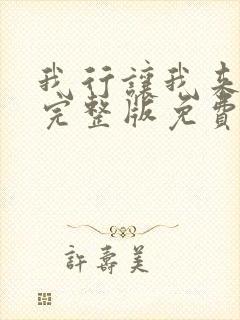 我行讓我來
完整版免費
許壽美